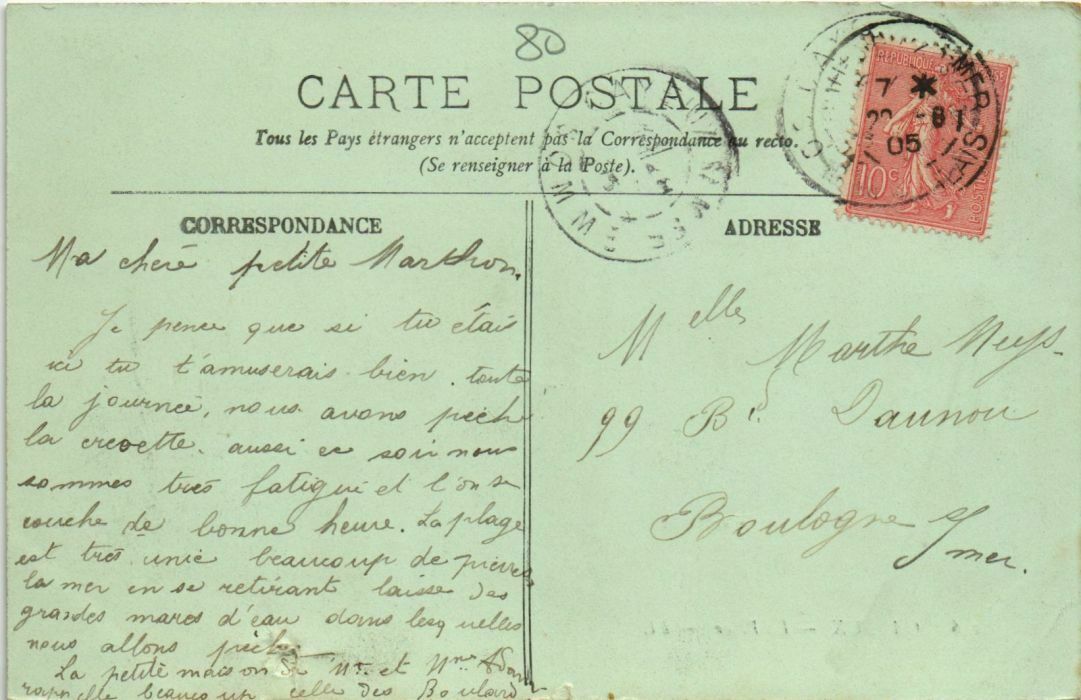 80
CARTE POSTALE
Tous les Pays étrangers n'acceptent pas la Correspondance au recto.
(Se renseigner à la Poste).
CORRESPONDANCE
Ma chéré petite Marthon.
Je pence que si tu étais
ici tu t'amuserais bien toute
la journée, nous avons pêché
la crevette. aussi ce soir nous
sommes très fatigué et l'on se
couche de bonne heure. La plage
est très unie beaucoup de pierres
la mer en se retirant laisse des
grandes mares d'eau dans lesquelles
nous allons pêcher
La petite maison de Mr et Mme Adam
rappelle beaucoup celle des Boulard
ADRESSE
Melle Marthe Neys-
99 Bd Daunou
Boulogne s/mer.
REPUBLIQUE
10c
7
22 -8
05
MER